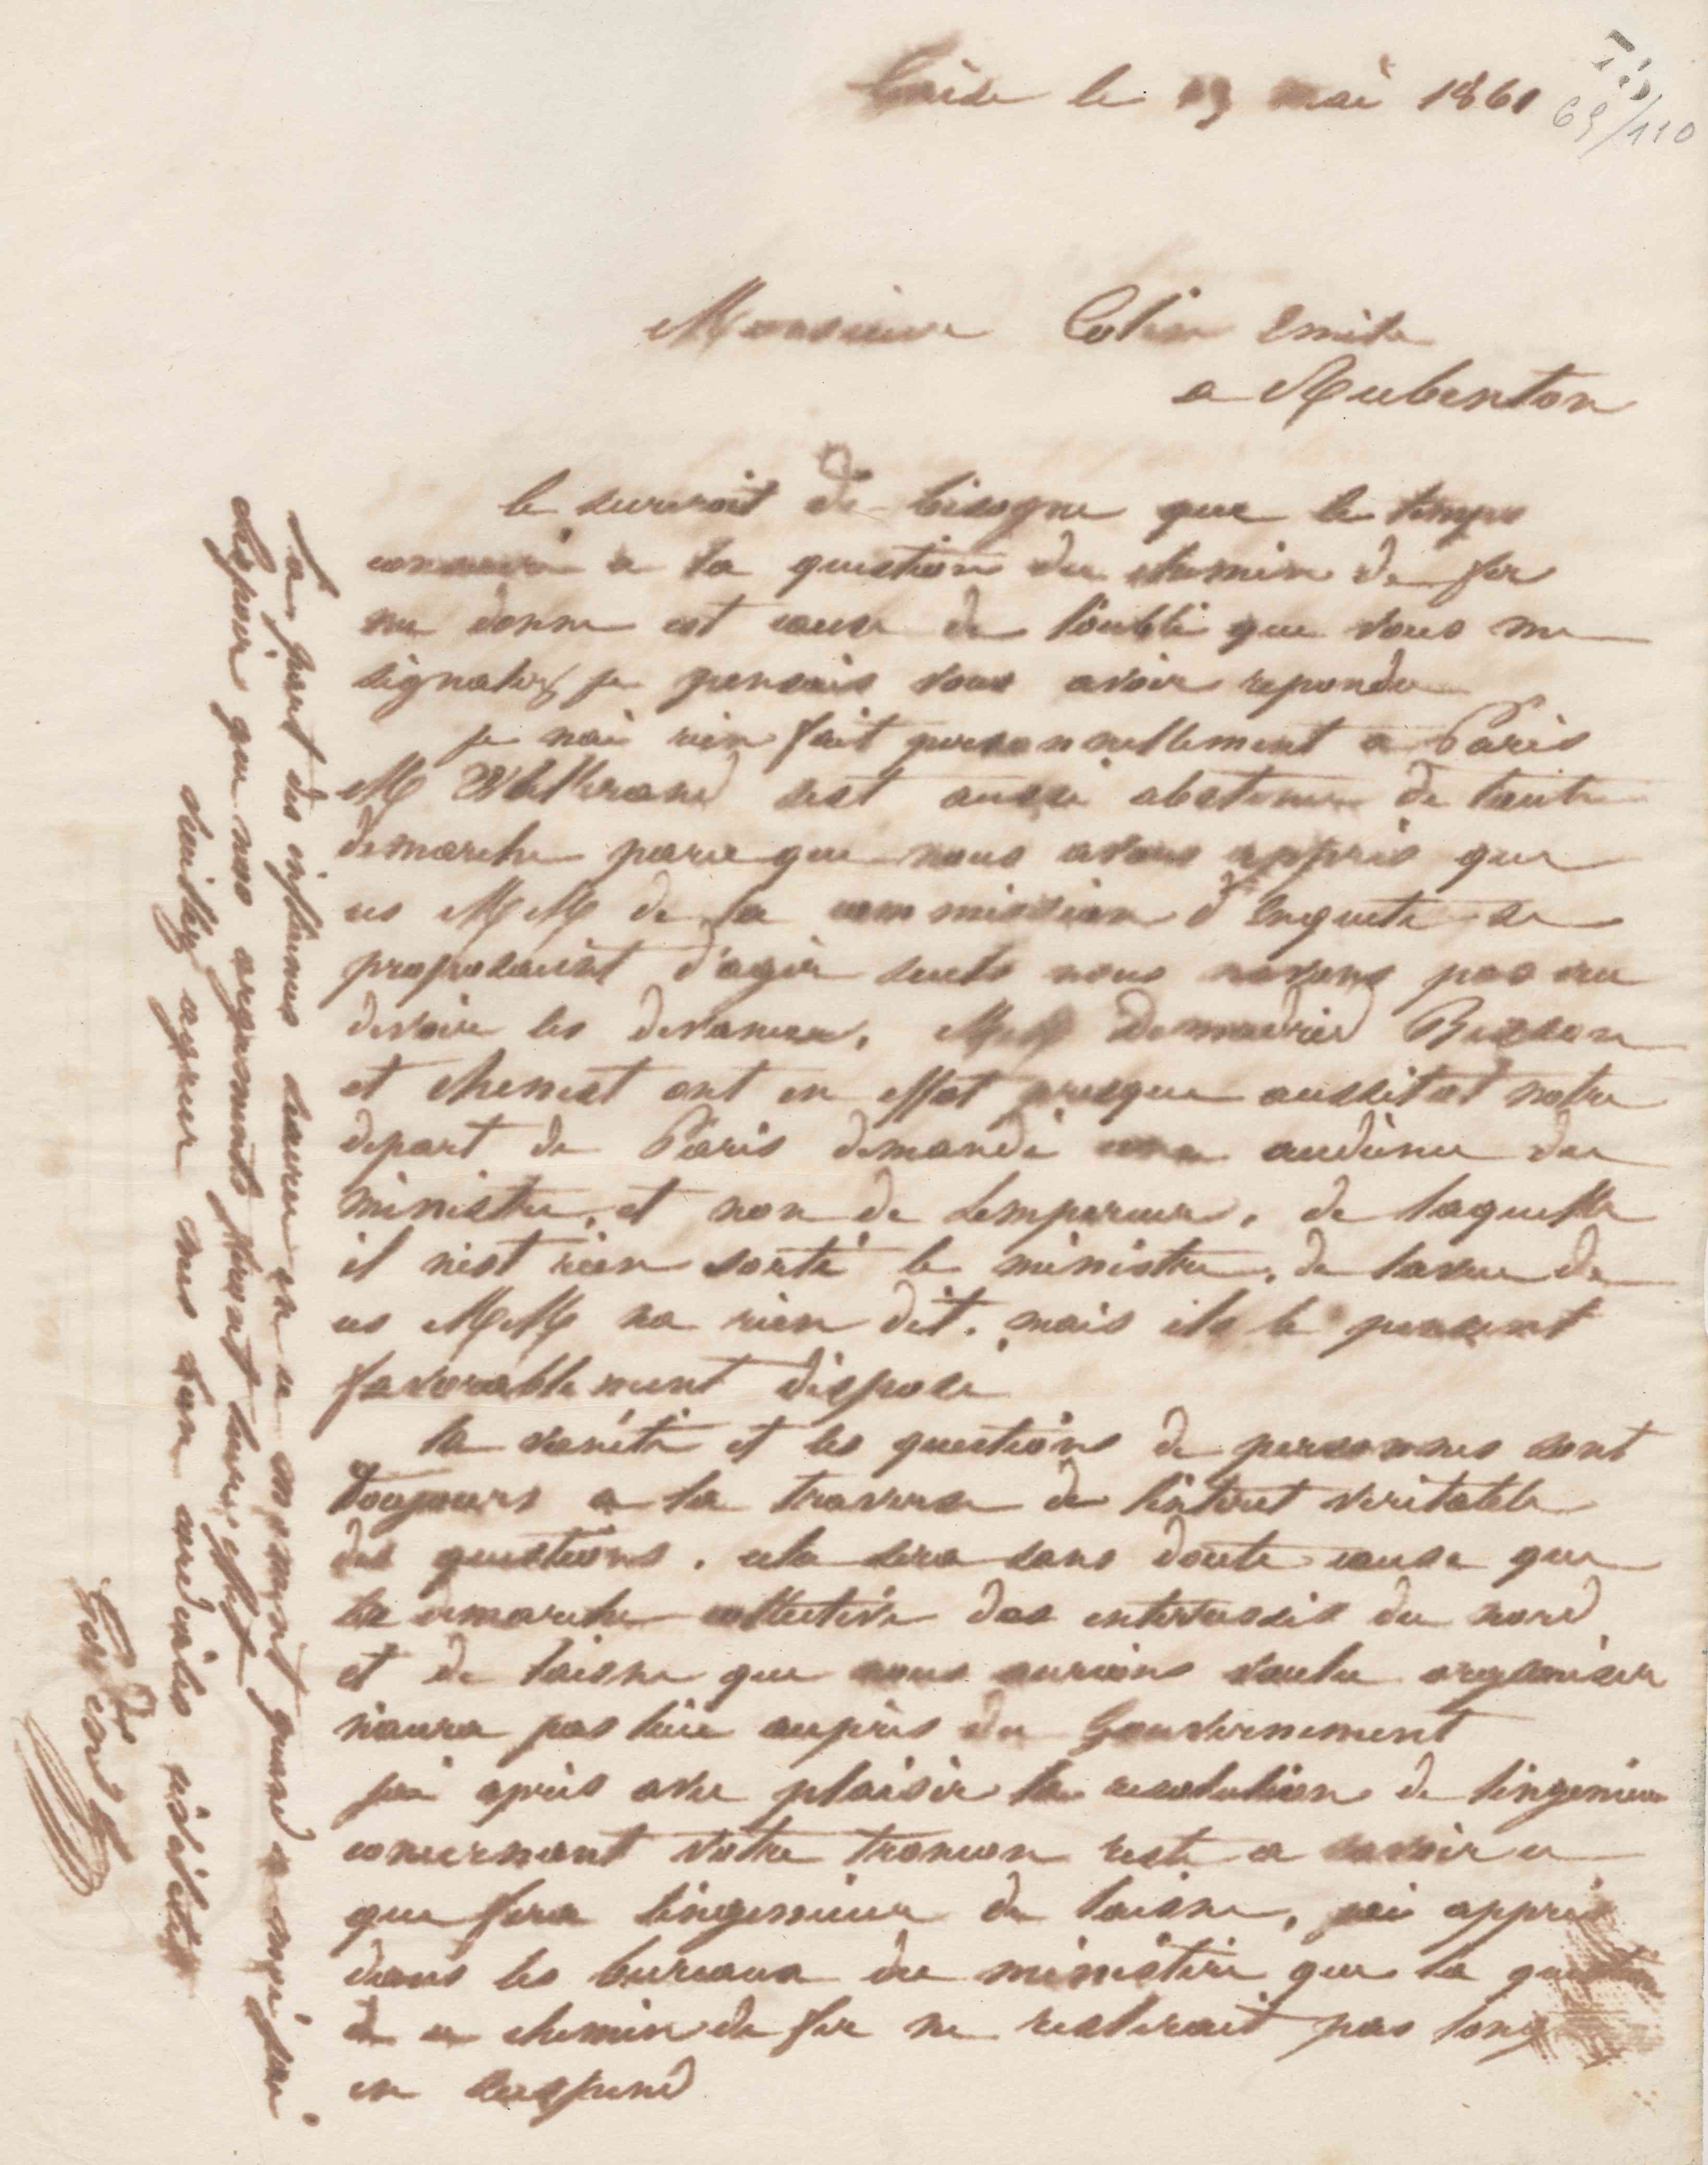 Guise le 19 mai 1861
69/110
Monsieur Colin Emile
a Aubenton
le surcroit de besogne que le temps
consacré a la question du chemin de fer
me donne est cause de l'oubli que vous me
signalez je pensais vous avoir repondu
je nai rien fait personnellement a Paris
M sest aussi abstenu de toute
demarche parceque nous avons appris que
ces MM de la commission d'Enquete se
proposaient d'agir seuls nous navons pas cru
devoir les devancer. MM Besson
et chenest ont en effet presque aussitot notre
depart de Paris demandé une audience du
ministre, et non de Lempereur, de laquelle
il nest rien sorti le ministre, de laveu de
ces MM na rien dit. mais ils le pensent
favorablement disposé
la vanité et les questions de personnes sont
toujours a la traverse de lintéret veritable
des questions. cela sera sans doute cause que
la demarche collective des interessés du nord
et de laisne que nous aurions voulu organiser
naura pas lieu aupres du Gouvernement
jai apris avec plaisir la resolution de lingenieur
concernant votre troncon reste a savoir ce
que fera lingenieur de laisne, jai appris
dans les bureaux du ministère que la question
de ce chemin de fer ne resterait pas long
en suspend
La part des influences sauver en ce moment quand a moi jai
lespoir que nos arguments feront leur effet
Veuillez agreer mes bien cordiales civilités
Godin